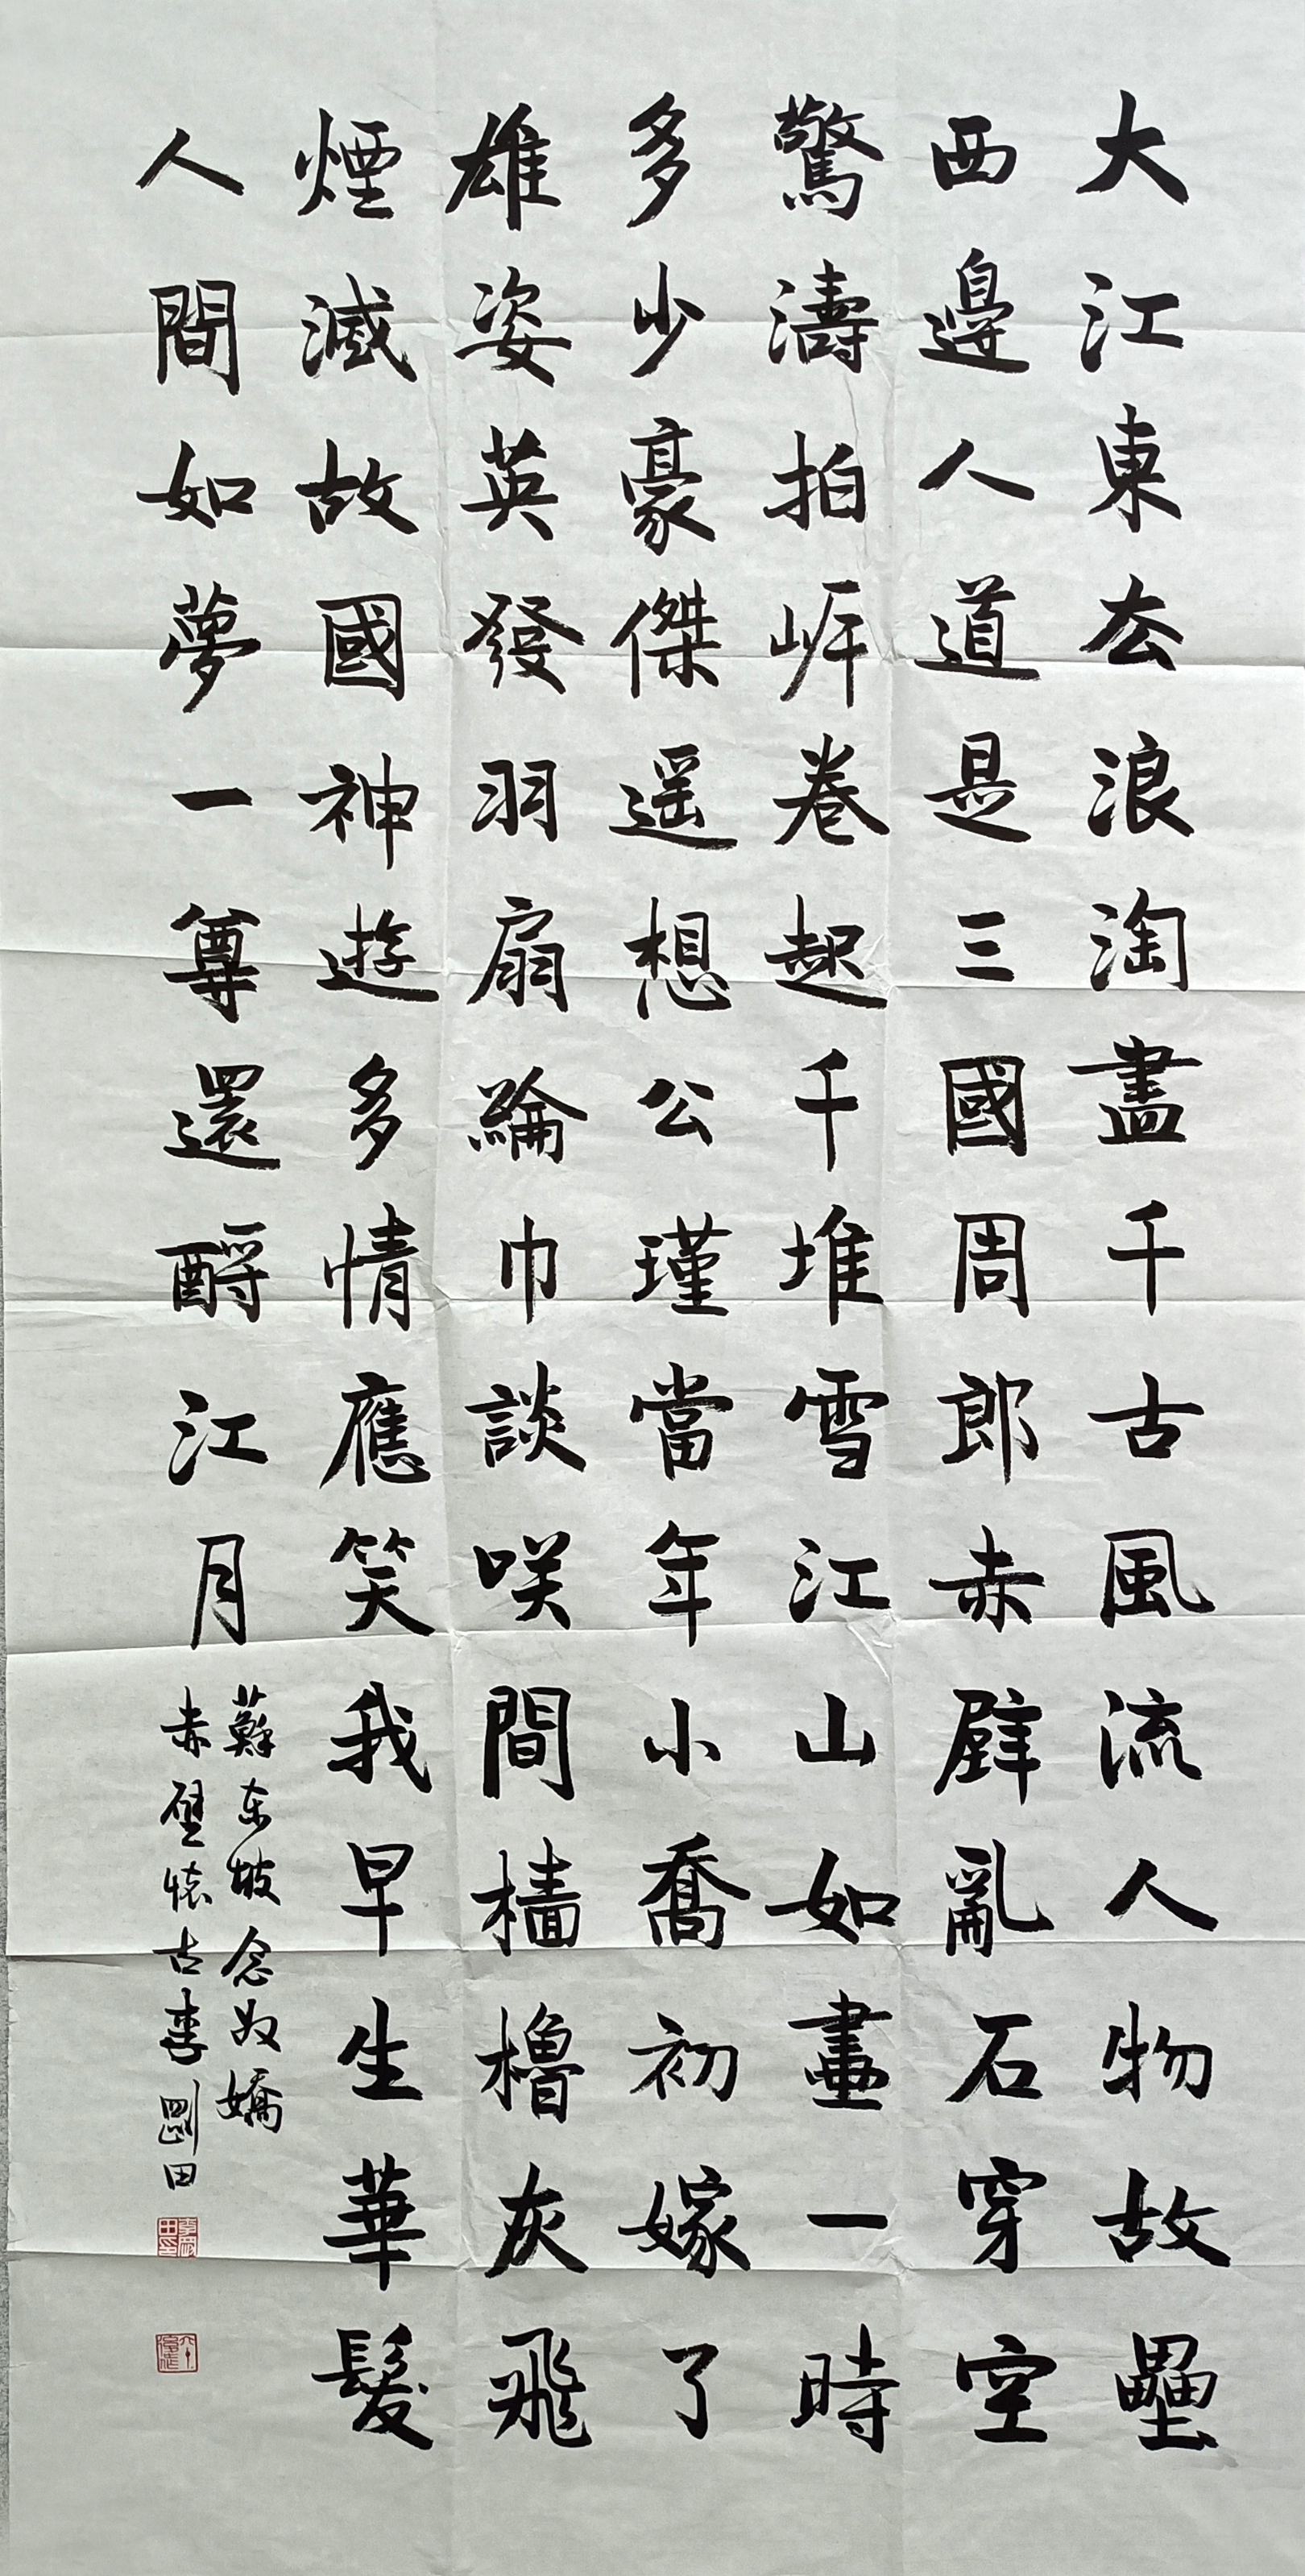 大江東去浪淘盡千古風流人物故壘
西邊人道是三國周郎赤壁亂石穿空
驚濤拍岸卷起千堆雪江山如畫一時
多少豪傑遥想公瑾當年小喬初嫁了
雄姿英發羽扇綸巾談咲間檣櫓灰飛
煙滅故國神遊多情應笑我早生華髮
人間如夢一尊還酹江月
蘇东坡念奴嬌
赤壁懷古李剛田